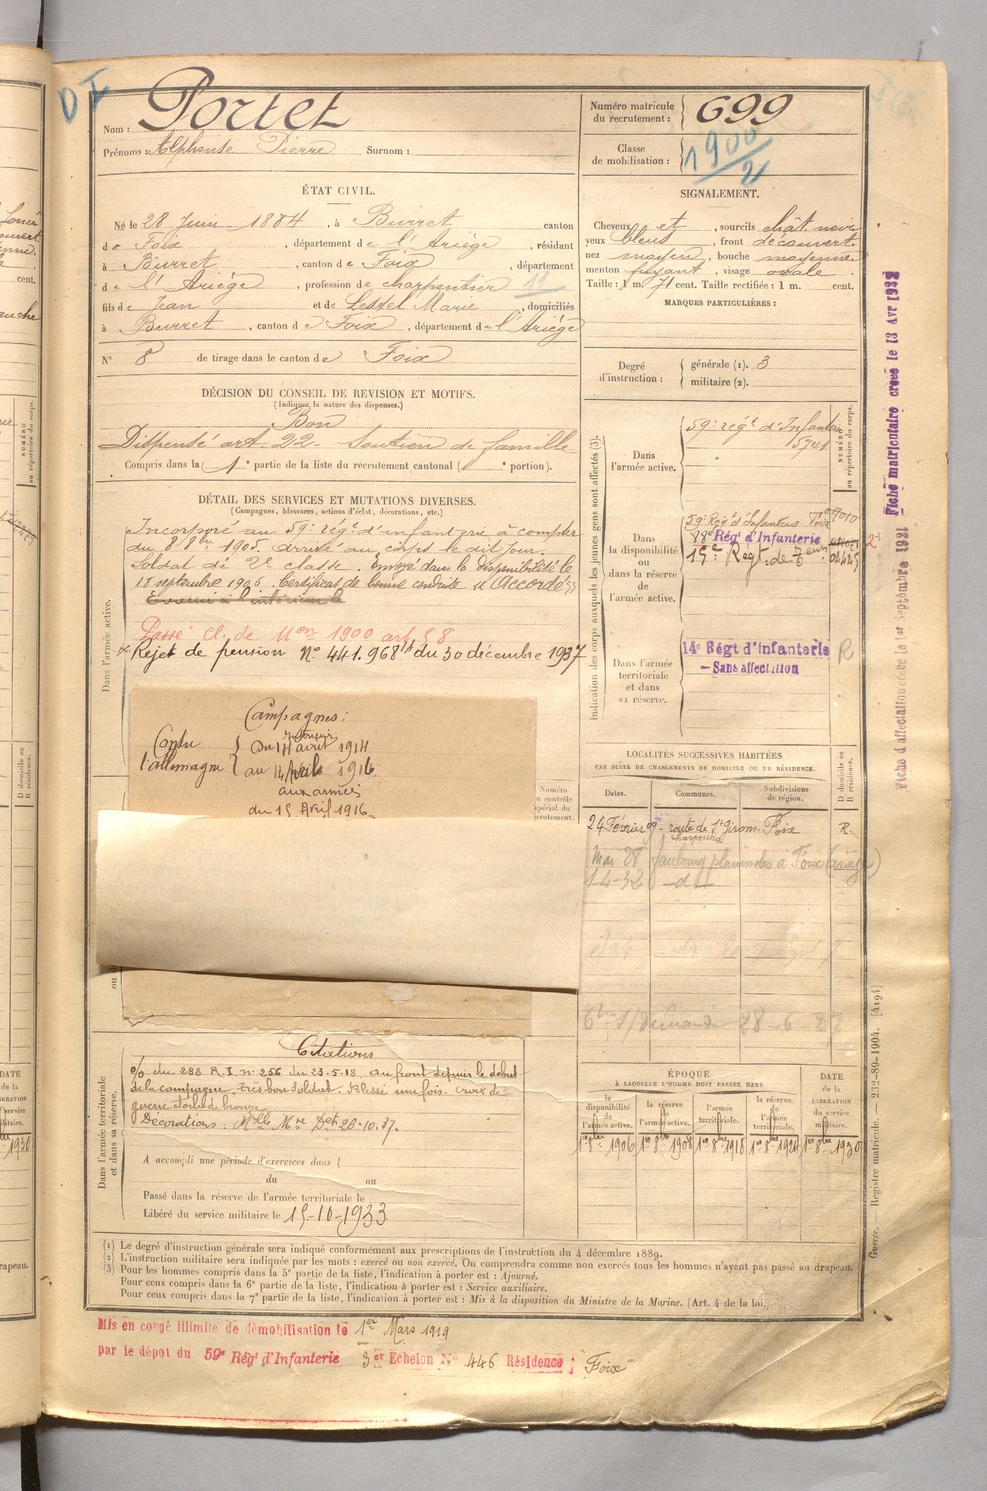 Nom : Portet
Prénoms : Alphonse Pierre Surnom :
Numéro matricule du recrutement : 699
Classe de mobilisation : 1900/2
ÉTAT CIVIL.
Né le 28 Juin 1884, à Burret canton
de Foix, département de l'Ariège, résidant
à Burret, canton de Foix, département
de l'Ariège, profession de charpentier 11
fils de Jean et de Lestel Marie, domiciliés
à Burret, canton de Foix, département de l'Ariège
N° 8 de tirage dans le canton de Foix
SIGNALEMENT.
Cheveux et, sourcils chât. noir
yeux bleus, front découvert
nez moyen, bouche moyenne
menton fuyant, visage ovale
Taille : 1 m. 71 cent. Taille rectifiée : 1 m. cent.
MARQUES PARTICULIÈRES :
Degré d'instruction : générale (1). 3
militaire (2).
DÉCISION DU CONSEIL DE REVISION ET MOTIFS.
(Indiquer la nature des dispenses.)
Bon
Dispensé art. 22 - Soutien de famille
Compris dans la 1e partie de la liste du recrutement cantonal ( e portion).
DÉTAIL DES SERVICES ET MUTATIONS DIVERSES.
(Campagnes, blessures, actions d'éclat, décorations, etc.)
Incorporé au 59e régt d'infanterie à compter
du 8 8bre 1905. Arrivé au corps le dit jour.
Soldat de 2e classe. Envoyé dans la disponibilité le
18 septembre 1906. Certificat de bonne conduite "Accordé"
Passé cl. de Mon 1900 art 58
Rejet de pension N° 441.968 du 30 décembre 1937
Dans l'armée active.
Campagnes :
Contre l'allemagne
au 14 Avril 1916
aux armées
du 15 Avril 1916
Indication des corps auxquels les jeunes gens sont affectés (3).
NUMÉRO au répertoire du corps.
Dans l'armée active.
59e régt d'Infanterie
5741
Dans la disponibilité ou dans la réserve de l'armée active.
59e Régt d'Infanterie Foix
88e Régt d'Infanterie
Dans l'armée territoriale et dans sa réserve.
14e Régt d'Infanterie R
- Sans affectation
LOCALITÉS SUCCESSIVES HABITÉES
PAR SUITE DE CHANGEMENTS DE DOMICILE OU DE RÉSIDENCE.
Dates. Communes. Subdivisions de région. D domicile ou R résidence.
24 Février 09 - route de St Girons - Foix R
charpentier
Mai 28 faubourg planissoles à Foix (Ariège)
1-4-32 -d-
Citations
o/o du 288 R.I. n° 256 du 23.5.18. Au front depuis le début
de la campagne. très bon soldat. Blessé une fois. Croix de
guerre étoile de bronze
Décorations : Mlle Mre Det 26-10.37.
Dans l'armée territoriale et dans sa réserve.
A accompli une période d'exercices dans
du au
Passé dans la réserve de l'armée territoriale le
Libéré du service militaire le 15-10-1933
ÉPOQUE
À LAQUELLE L'HOMME DOIT PASSER DANS
la disponibilité de l'armée active. la réserve de l'armée active. l'armée territoriale. la réserve de l'armée territoriale. DATE de la LIBÉRATION du service militaire.
1er 8bre 1906 1er 8bre 1908 1er 8bre 1918 1er 8bre 1924 1er 8bre 1930
(1) Le degré d'instruction générale sera indiqué conformément aux prescriptions de l'instruction du 4 décembre 1889.
(2) L'instruction militaire sera indiquée par les mots : exercé ou non exercé. On comprendra comme non exercés tous les hommes n'ayant pas passé au drapeau.
(3) Pour les hommes compris dans la 5e partie de la liste, l'indication à porter est : Ajourné.
Pour ceux compris dans la 6e partie de la liste, l'indication à porter est : Service auxiliaire.
Pour ceux compris dans la 7e partie de la liste, l'indication à porter est : Mis à la disposition du Ministre de la Marine. (Art. 4 de la loi.)
Mis en congé illimité de démobilisation le 1er Mars 1919
par le dépôt du 59e Régt d'Infanterie 3er Echelon N° 446 Résidence : Foix
Fiche matriculaire créée le 13 Avr 1932
Fiche d'affectation créée le 1er Septembre 1921
Guerre. — Registre matricule. — 232-89-1904. [4194]